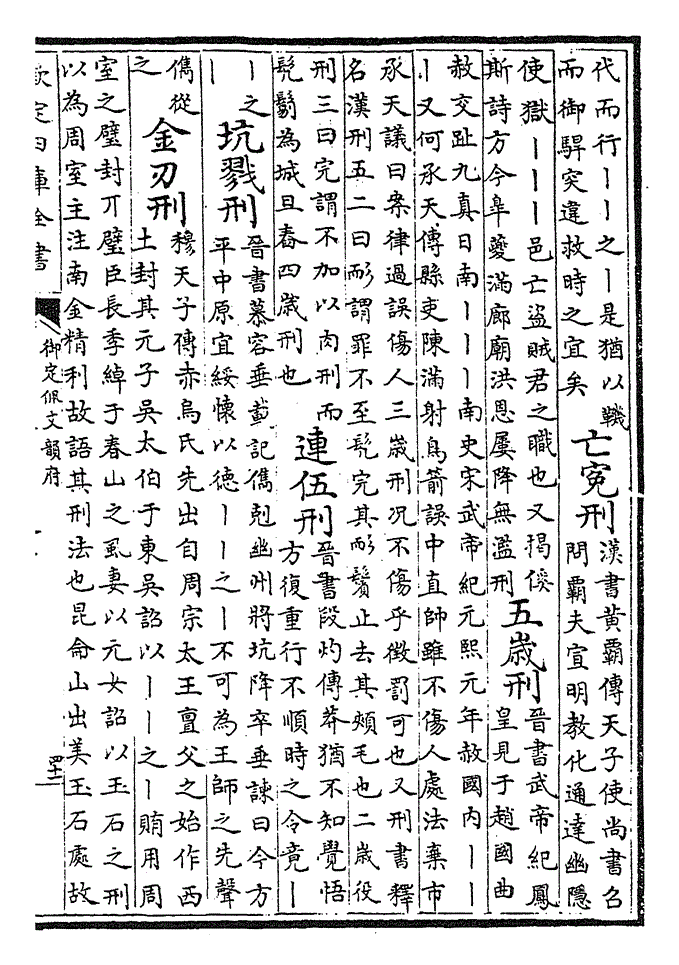 代而行丨丨之丨是猶以鞿
而御駻突違救時之宜矣
亡寃刑
漢書黃霸傳天子使尚書召
問霸夫宣明教化通達幽隱
使獄丨丨丨邑亡盜賊君之職也又揭傒
斯詩方今臯夔滿廊廟洪恩屢降無濫刑
五歲刑
晉書武帝紀鳳
皇見于趙國曲
赦交趾九真日南丨丨丨南史宋武帝紀元熙元年赦國内丨丨
丨又何承天傳縣吏陳滿射鳥箭誤中直師雖不傷人處法棄市
承天議曰案律過誤傷人三歲刑况不傷乎徵罰可也又刑書釋
名漢刑五二曰耏謂罪不至髡完其耏鬢止去其頰毛也二歲役
刑三曰完謂不加以肉刑而
髡鬄為城旦舂四歲刑也
連伍刑
晉書段灼傳莽猶不知覺悟
方復重行不順時之令竟丨
丨之
丨
坑戮刑
晉書慕容垂載記儁剋幽州將坑降卒垂諫曰今方
平中原宜綏懷以德丨丨之丨不可為王師之先聲
儁從
之
金刃刑
穆天子傳赤烏氏先出自周宗太王亶父之始作西
土封其元子吳太伯于東吳詔以丨丨之丨賄用周
室之璧封丌璧臣長季綽于春山之虱妻以元女詔以玉石之刑
以為周室主注南金精利故語其刑法也昆侖山出美玉石處故
欽定四庫全書
御定佩文韻府
四十二